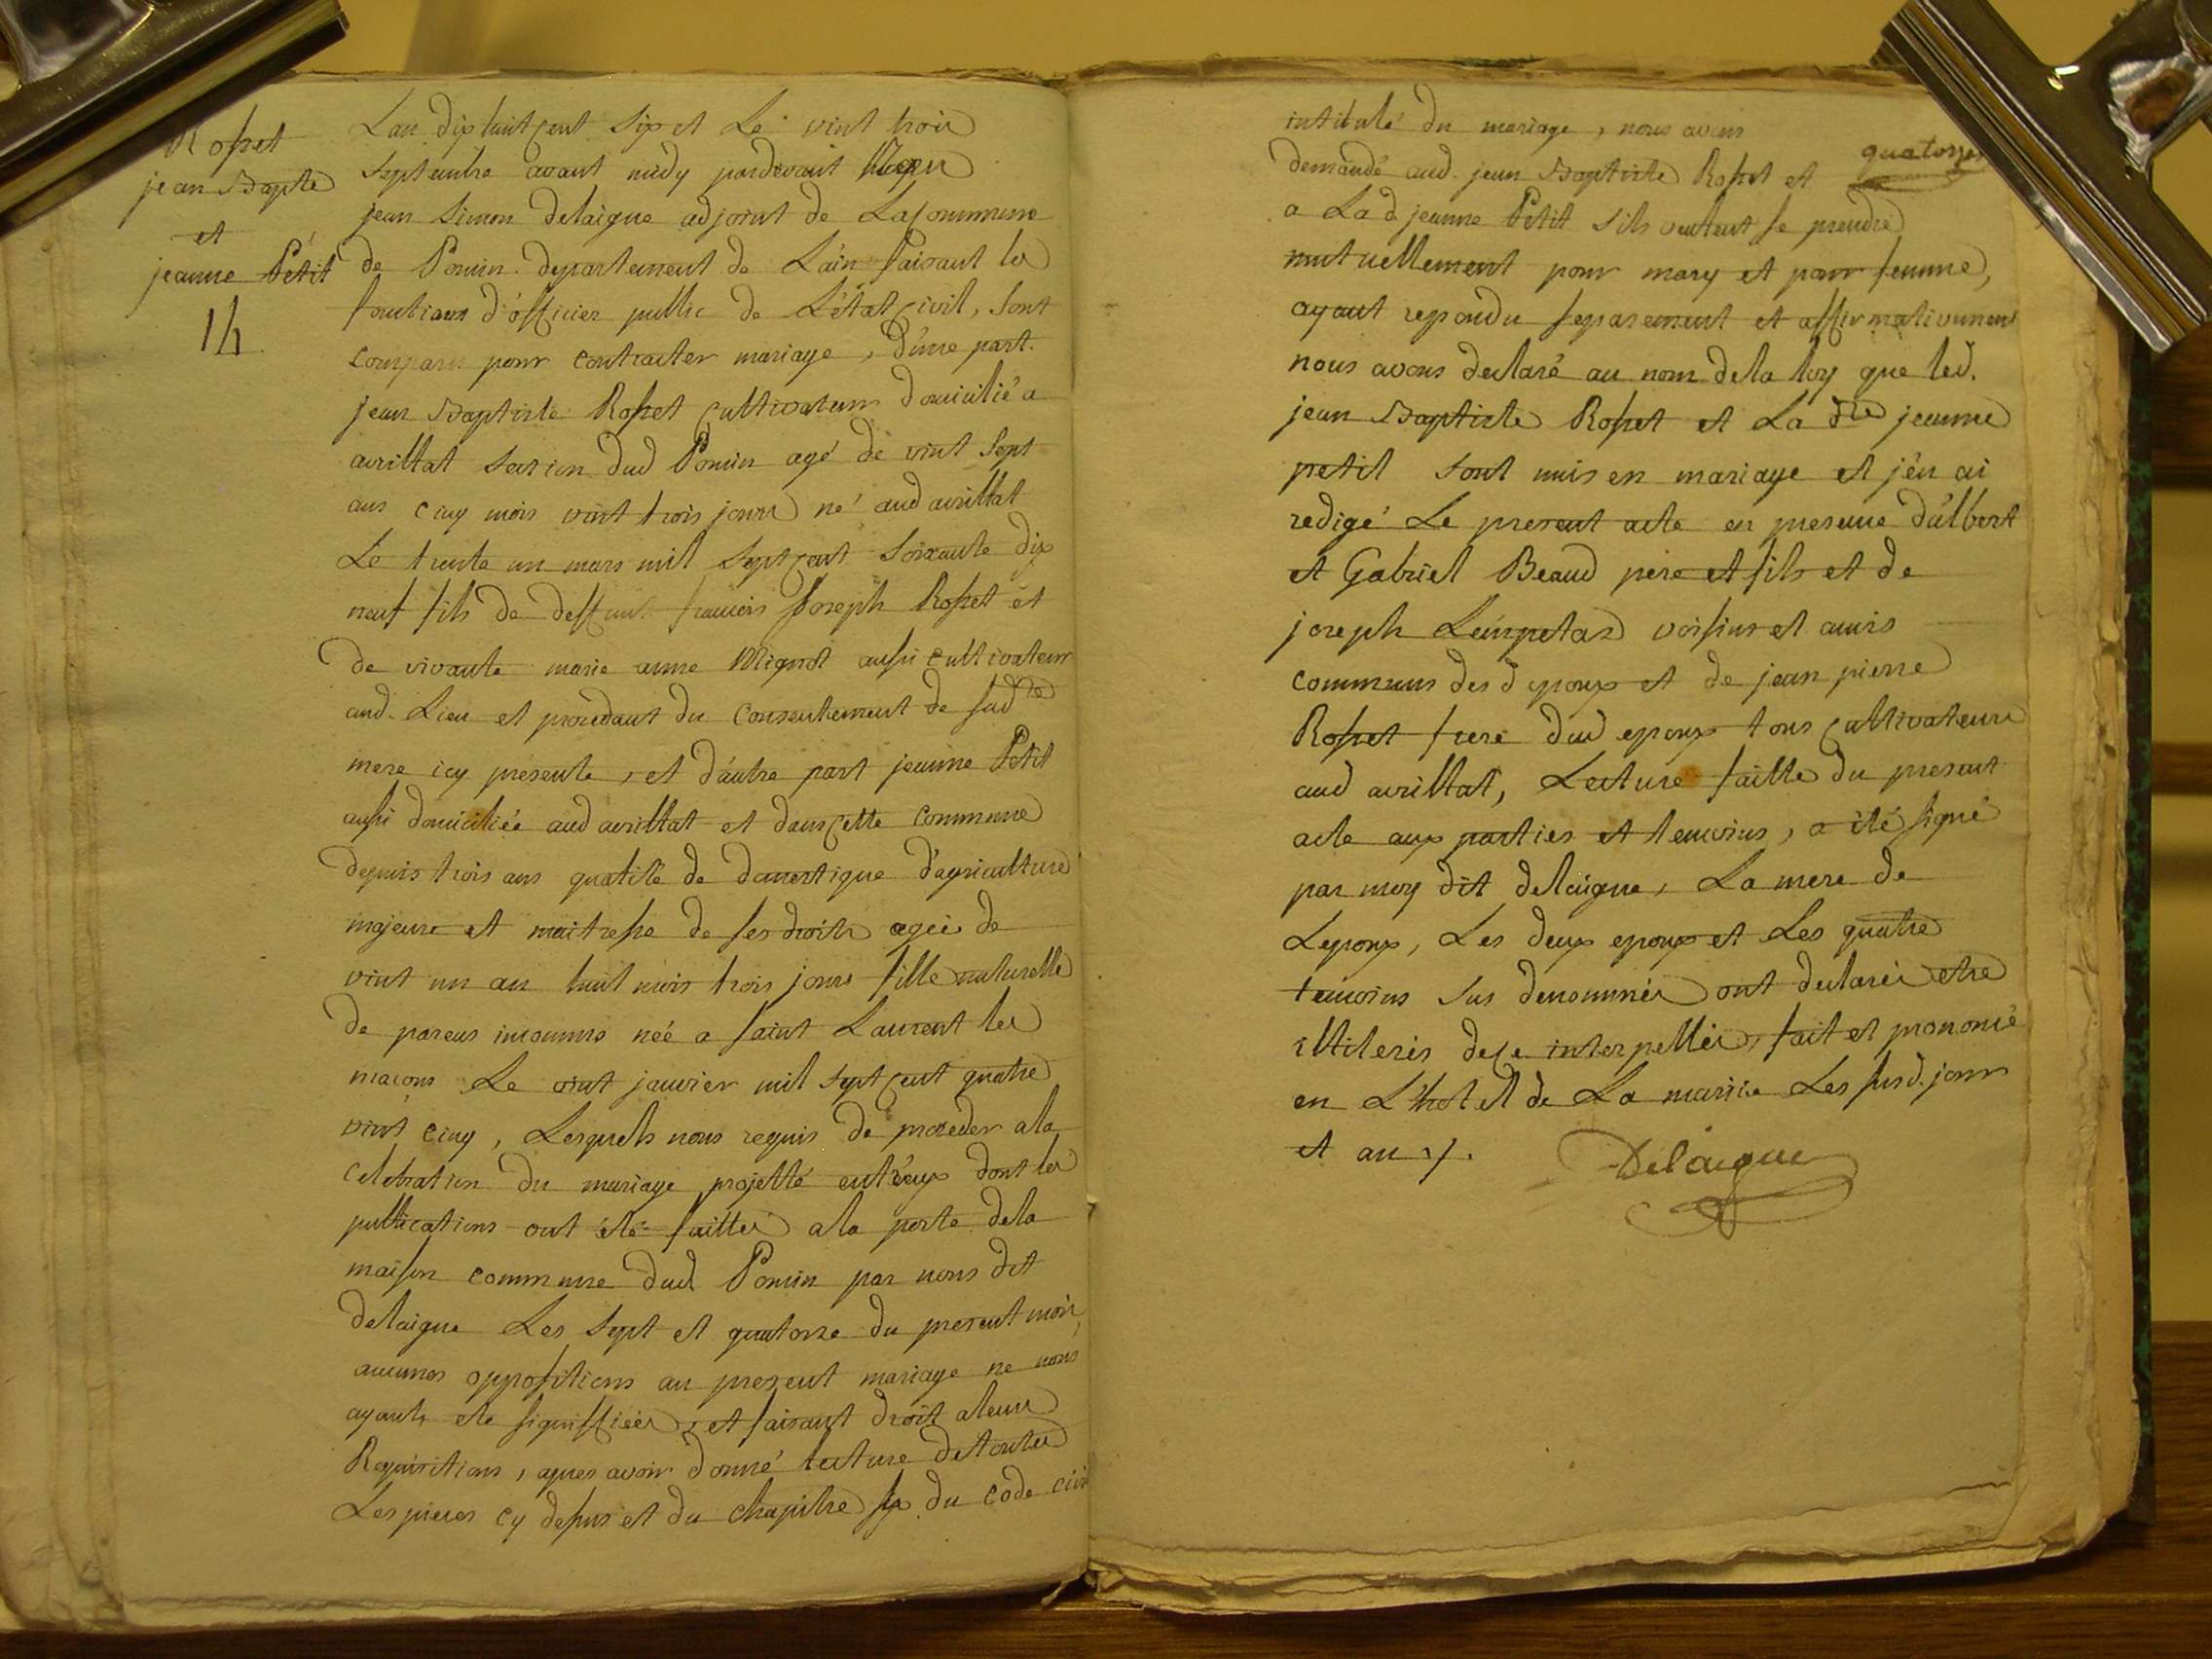 Rosset
jean Bapte
et
jeanne Petit
14
Lan dix huit cent six et Le vint trois
septembre avant midy pardevant Nous
jean Simon delaigue adjoint de La Commune
de Poncin departement de Lain faisant les
fonctions d'officier public de L'état Civil, sont
comparus pour contracter mariage, d'une part.
jean Baptiste Rosset Cultivateur domicilié a
avrillat section dud Poncin agé de vint sept
ans cinq mois vint trois jours né aud avrillat
Le trente un mars mil sept cent soixante dix
neuf fils de deffunt francois Joseph Rosset et
de vivante marie anne Mignot aussi cultivateur
aud. Lieu et procedant du consentement de sad te
mere icy presente, et d'autre part jeanne Petit
aussi domiciliée aud avrillat et dans cette commune
depuis trois ans qualité de domertique d'agriculture
majeure et maitresse de ses droits agée de
vint un an huit mois trois jours fille naturelle
de parens inconnus née a saint Laurent les
macons Le vint janvier mil sept cent quatre
vint cinq, Lesquels nous requis de proceder a la
Celebration du mariage projetté entr'eux dont les
publications ont été faittes a la porte dela
maison commune dud Poncin par nous dit
delaigue Les sept et quatorze du present mois,
aucunes oppositions au present mariage ne nous
ayants ete signiffiées, et faisant droit aleurs
Requisitions, apres avoir donné lecture de toutes
Les pieces cy dessus et du chapitre six du code civil
quatorze
intitulé du mariage, nous avons
demandé aud. jean Baptiste Rosset et
a La d jeanne Petit s'ils veulent se prendre
mutuellement pour mary et pour femme,
ayant repondu separement et affirmativement
nous avons declaré au nom dela loy que led.
jean Baptiste Rosset et La dte jeanne
petit sont unis en mariage et j'en ai
redigé Le present acte en presence d'albert
et Gabriel Beaud pere et fils et de
joseph voisins et amis
communs des d epoux et de jean pierre
Rosset frere dud epoux tous Cultivateurs
aud avrillat, Lecture faitte du present
acte aux parties et temoins, a été signé
par moy dit delaigue, La mere de
Lepoux, Les deux epoux et Les quatre
temoins sus denommés ont declarés etre
illiterés de ce interpellés, fait et prononcé
en L'hotel de La mairie Les susd. jour
et an ./.
Delaigue